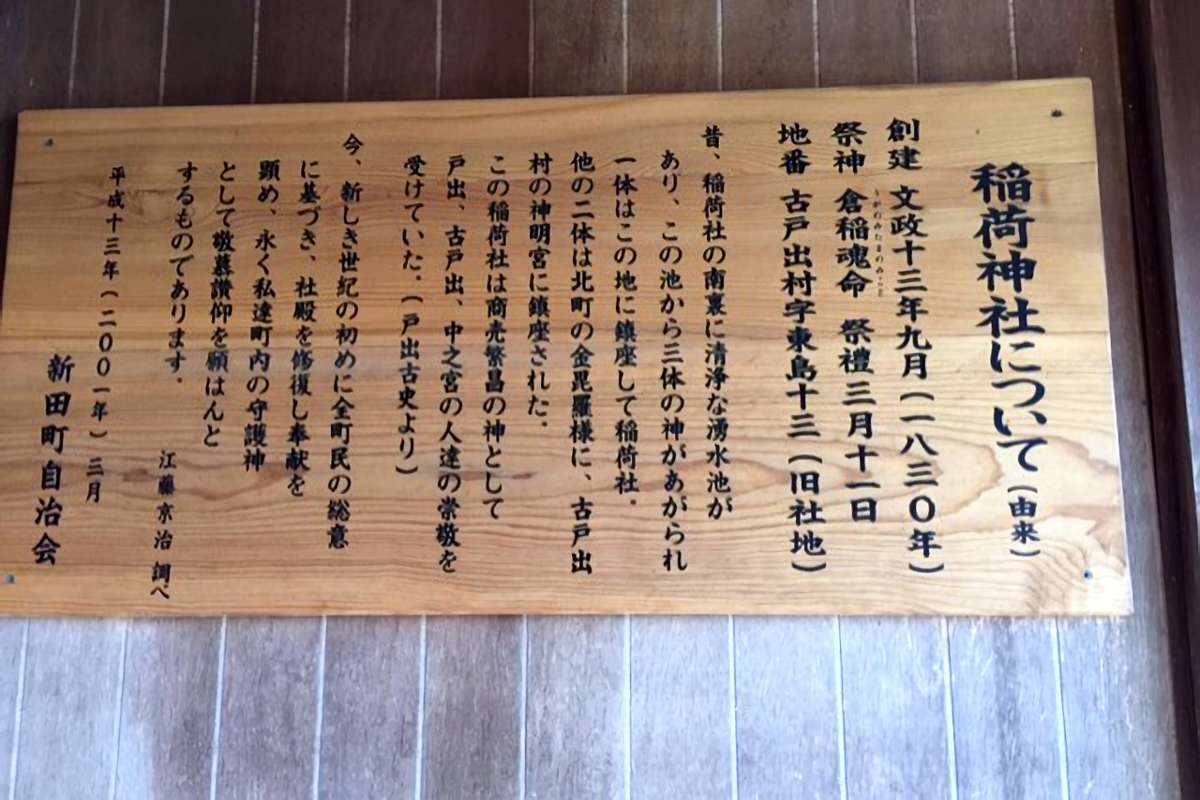 稲荷神社について(由来)
創建 文政十三年九月(一八三〇年)
祭神 倉稲魂命 祭禮三月十一日
うがのみたまのみこと
地番 古戸出村字東島十三(旧社地)
昔、稲荷社の南裏に清浄な湧水池が
あり、この池から三体の神があがられ
一体はこの地に鎮座して稲荷社.
他の二体は北町の金毘羅様に、古戸出
村の神明宮に鎮座された.
この稲荷社は商売繁昌の神として
戸出、古戸出、中之宮の人達の崇敬を
受けていた.(戸出古史より)
今、新しき世紀の初めに全町民の総意
に基づき、社殿を修復し奉献を
顕め、永く私達町内の守護神
として敬慕讃仰を願はんと
するものであります.
江藤京治 調べ
平成十三年(二〇〇一年)三月
新田町自治会